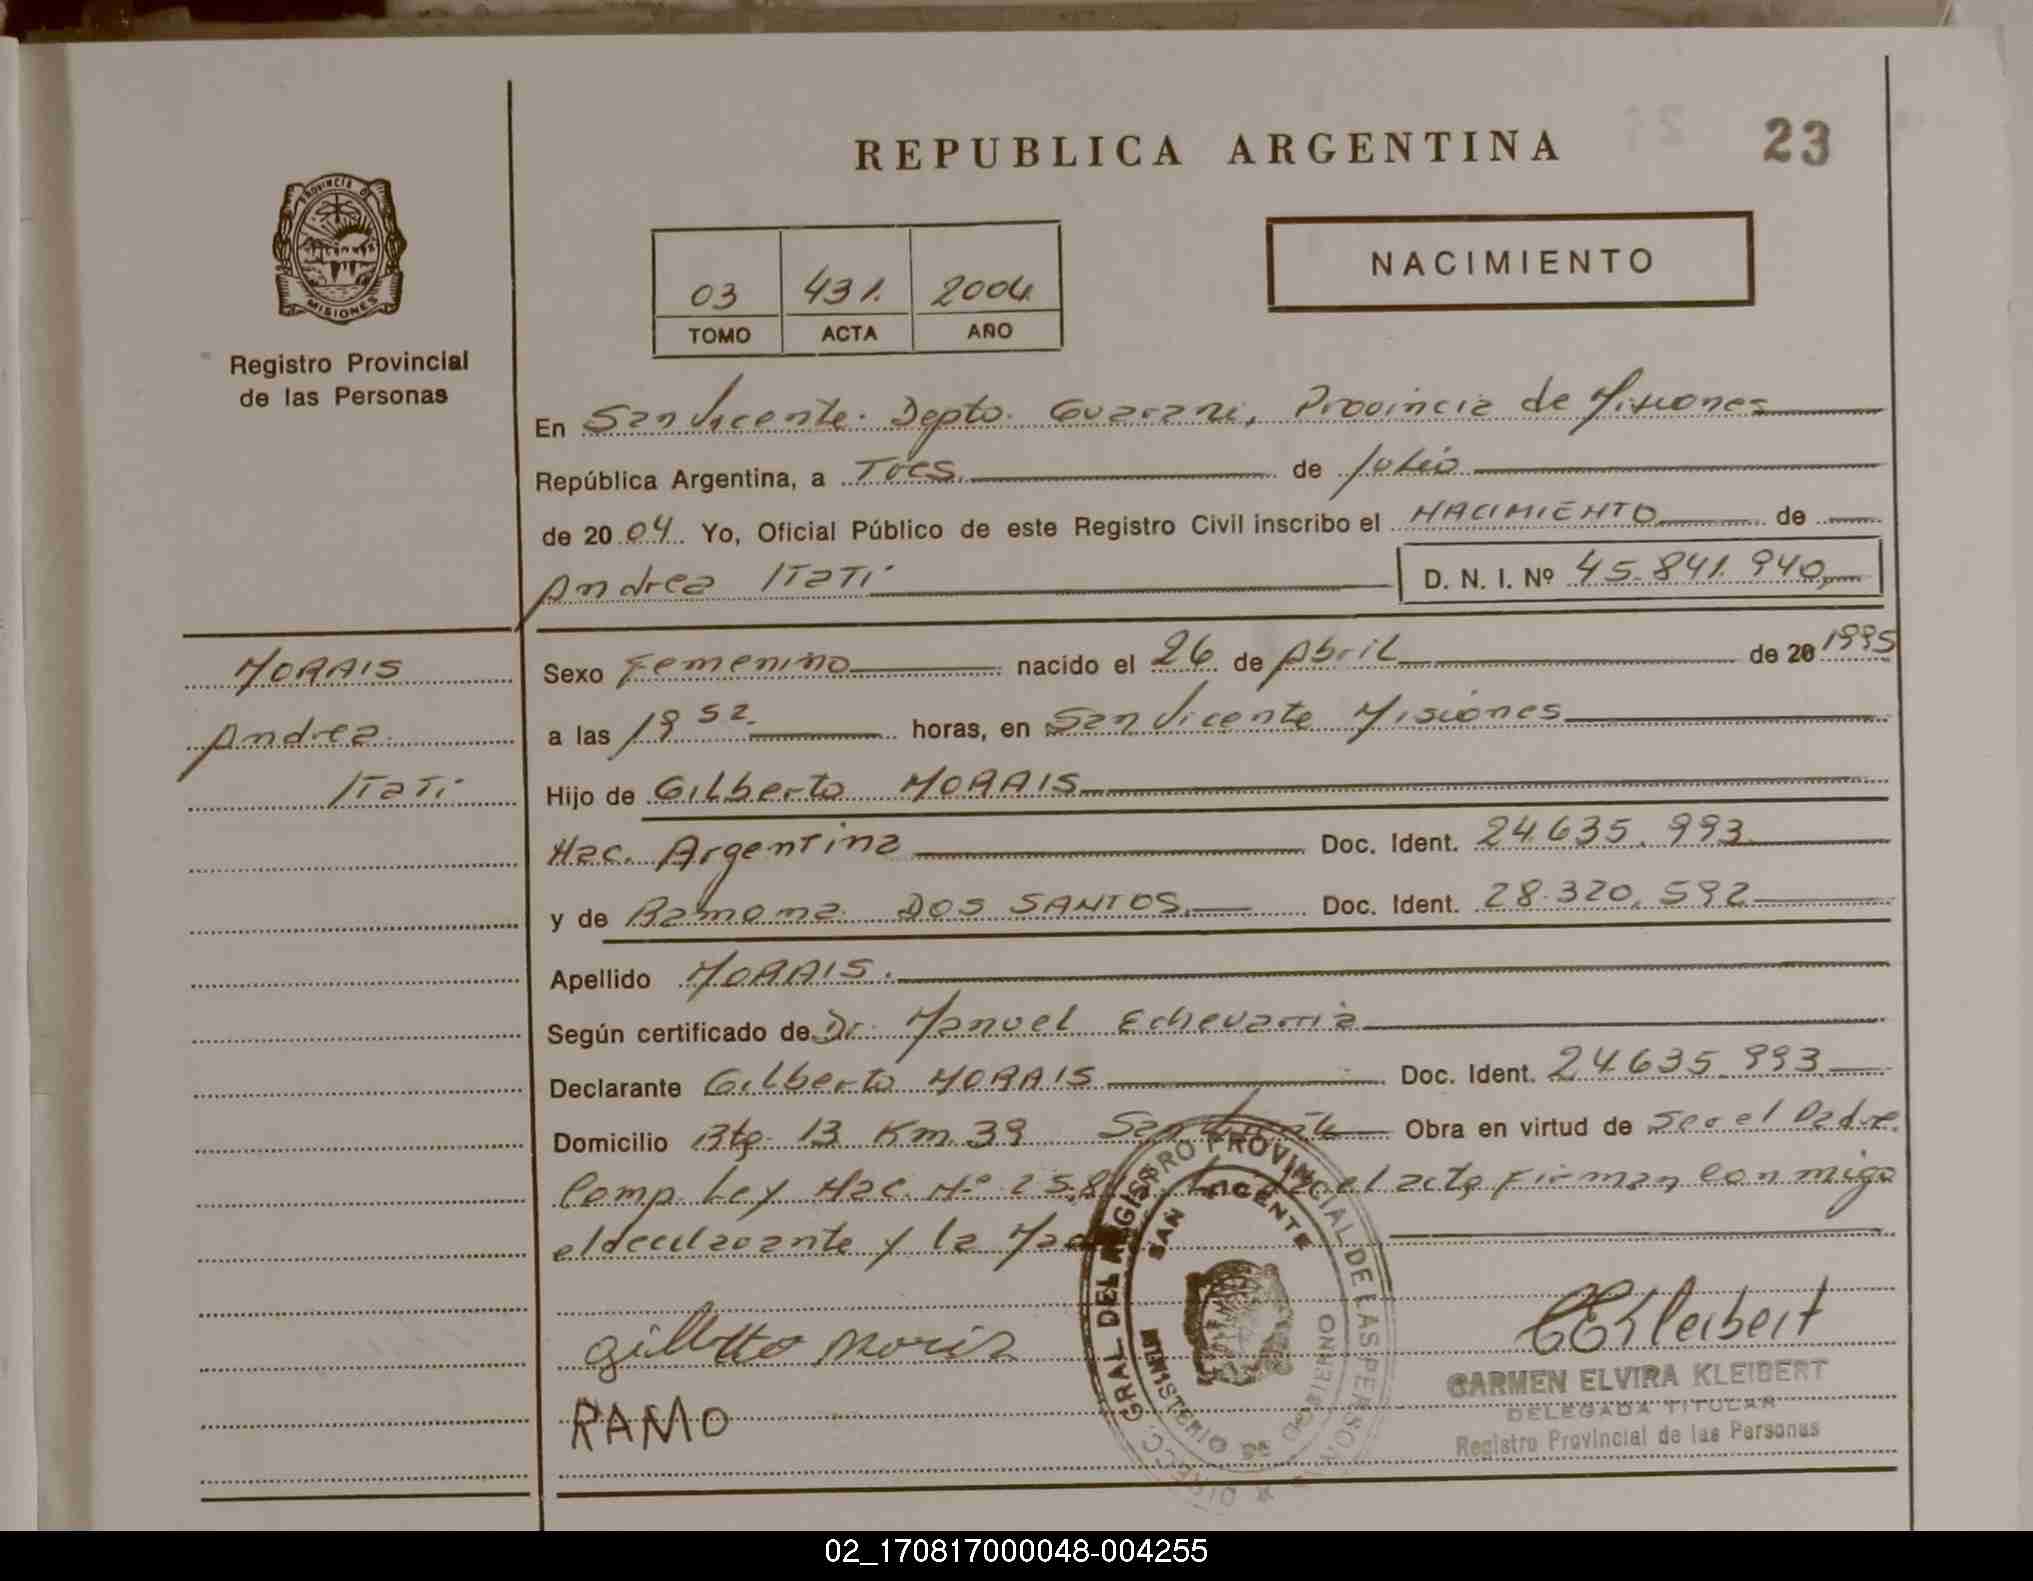 REPUBLICA ARGENTINA
23
PROVINCIA DE
MISIONES
Registro Provincial
de las Personas
03 431. 2004
TOMO ACTA AÑO
NACIMIENTO
En San Vicente. Depto. Guarani, Provincia de Misiones
República Argentina, a Tres. de Julio
de 2004. Yo, Oficial Público de este Registro Civil inscribo el NACIMIENTO de
Andrea Itati D. N. I. Nº 45.841.940
MORAIS
Andrea
Itati
Sexo Femenino nacido el 26 de Abril de 20 1995
a las 19 52 horas, en San Vicente Misiones
Hijo de Gilberto MORAIS
Nac. Argentina Doc. Ident. 24.635.993
y de Ramona DOS SANTOS Doc. Ident. 28.320.592
Apellido MORAIS.
Según certificado de Dr. Manuel Echevarria
Declarante Gilberto MORAIS Doc. Ident. 24.635.993
Domicilio Rta. 13 Km. 39 San Vicente Obra en virtud de ser el Padre.
Comp. Ley Nac. Nº 25.8 el acta Firman conmigo
el declarante y la
DIRECC. GRAL. DEL REGISTRO PROVINCIAL DE LAS PERSONAS
SAN VICENTE
MINISTERIO DE GOBIERNO
RAMO
CEKleibert
CARMEN ELVIRA KLEIBERT
DELEGADA TITULAR
Registro Provincial de las Personas
02_170817000048-004255